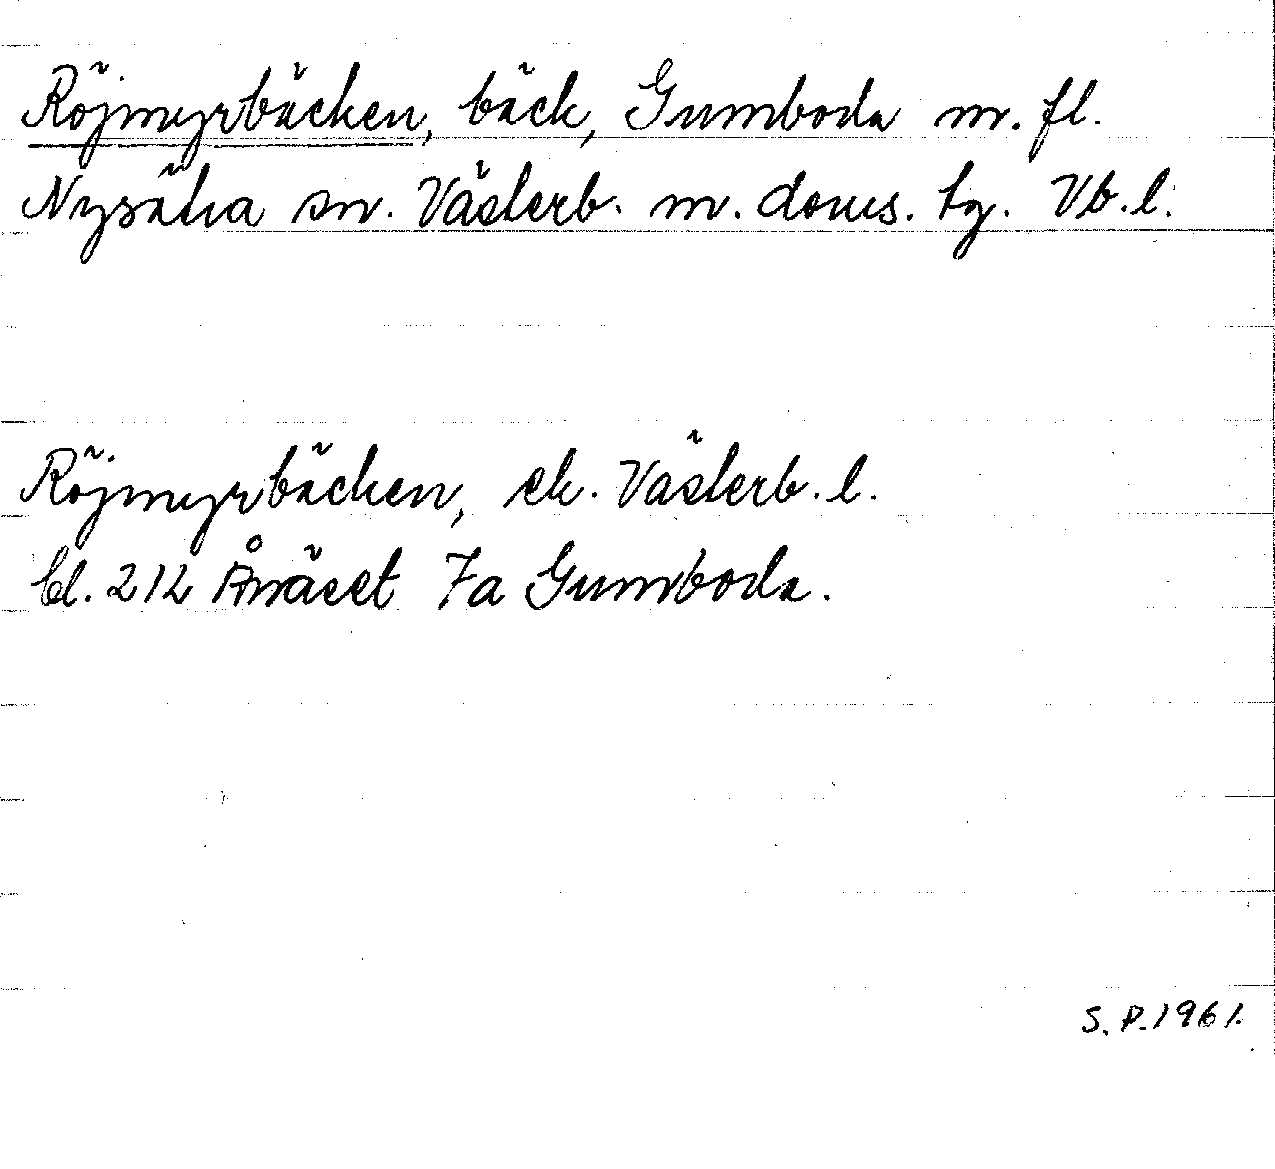 Röjmyrbäcken, bäck, Gumboda m. fl.
Nysätra sn. Västerb. m. doms. tg. Vb. l.
Röjmyrbäcken, ek. Västerb. l.
bl. 212 Ånäset 7a Gumboda.
S. P. 1961.